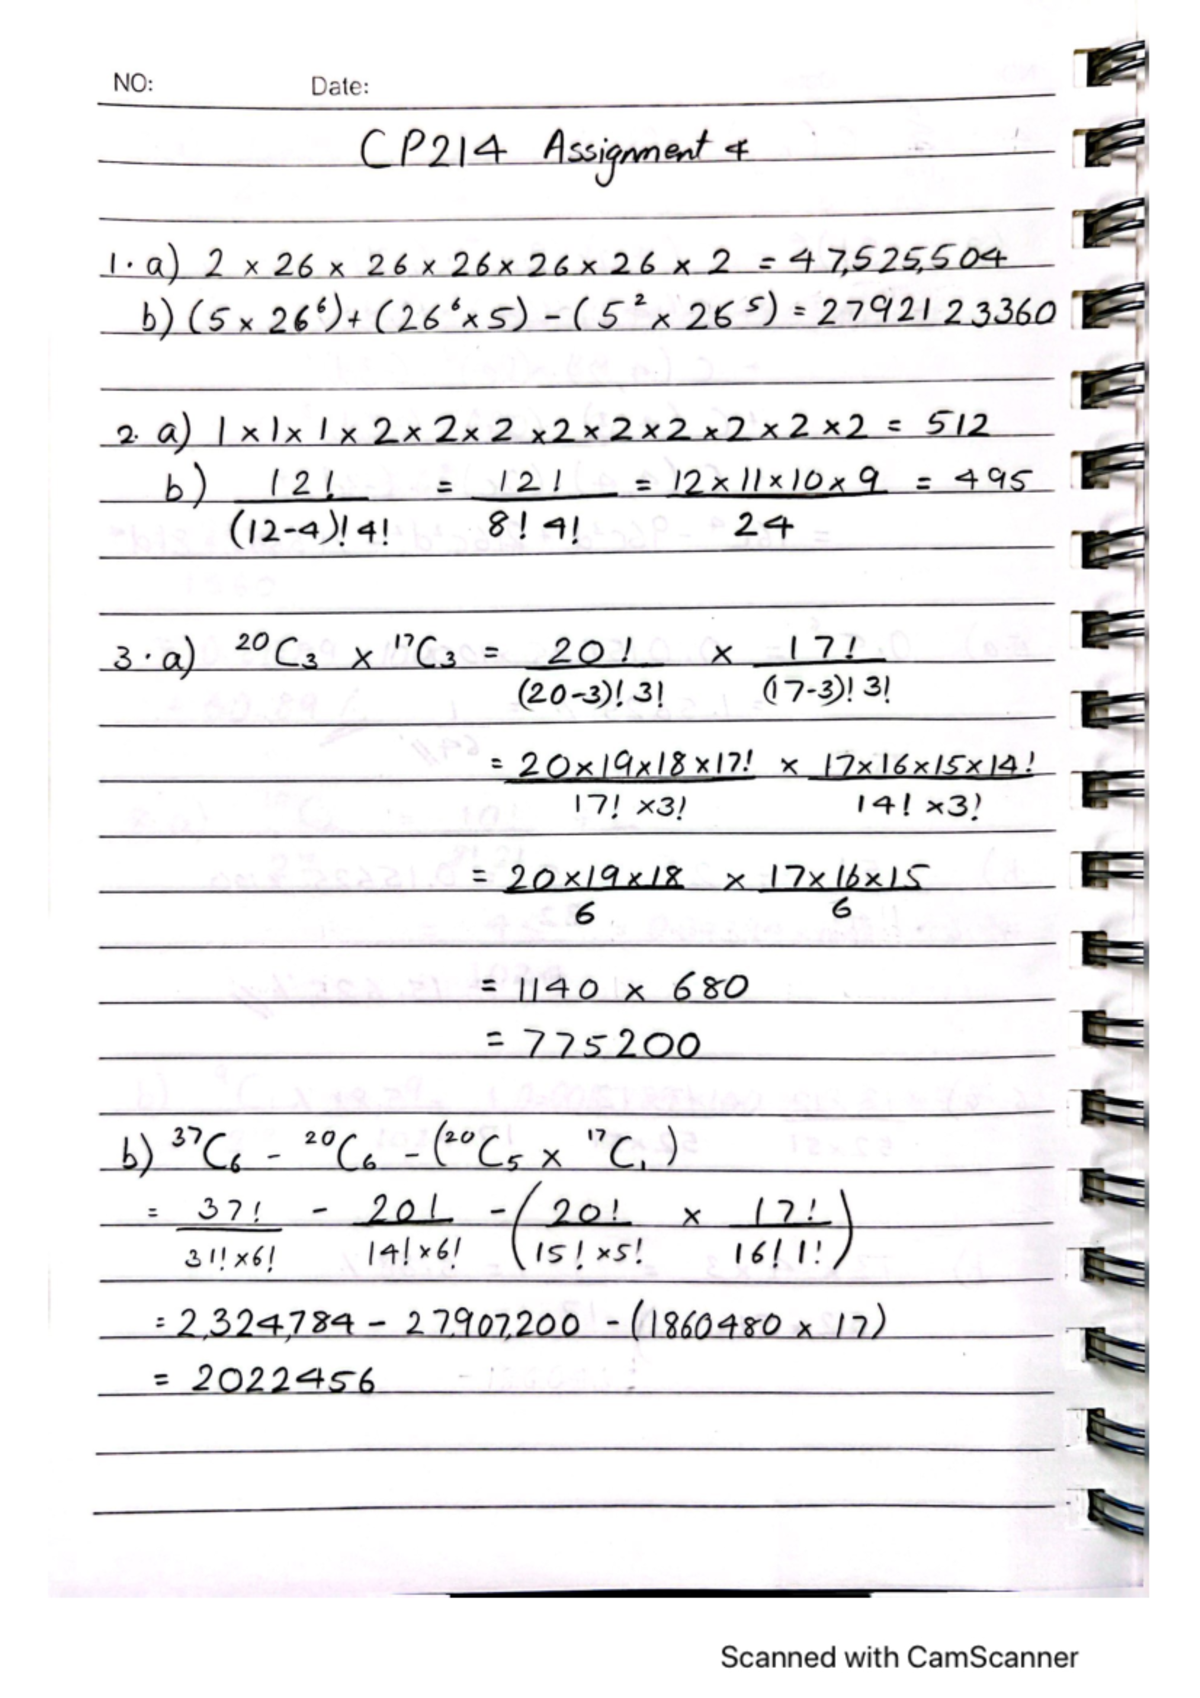 NO: Date:
CP214 Assignment 4
1. a) 2 × 26 × 26 × 26 × 26 × 26 × 2 = 47,525,504
b) (5 × 26⁶) + (26⁶ × 5) - (5² × 26⁵) = 2792123360
2. a) 1 × 1 × 1 × 2 × 2 × 2 × 2 × 2 × 2 × 2 × 2 × 2 = 512
b) 12! / (12-4)! 4! = 12! / 8! 4! = 12 × 11 × 10 × 9 / 24 = 495
3. a) ²⁰C₃ × ¹⁷C₃ = 20! / (20-3)! 3! × 17! / (17-3)! 3!
= 20×19×18×17! / 17! ×3! × 17×16×15×14! / 14! ×3!
= 20×19×18 / 6 × 17×16×15 / 6
= 1140 × 680
= 775200
b) ³⁷C₆ - ²⁰C₆ - (²⁰C₅ × ¹⁷C₁)
= 37! / 31! ×6! - 20! / 14! ×6! - (20! / 15! ×5! × 17! / 16! 1!)
= 2,324,784 - 27,907,200 - (1860480 × 17)
= 2022456
Scanned with CamScanner